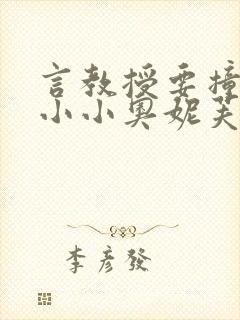 言教授要撞
小小奥妮芙
李彦發